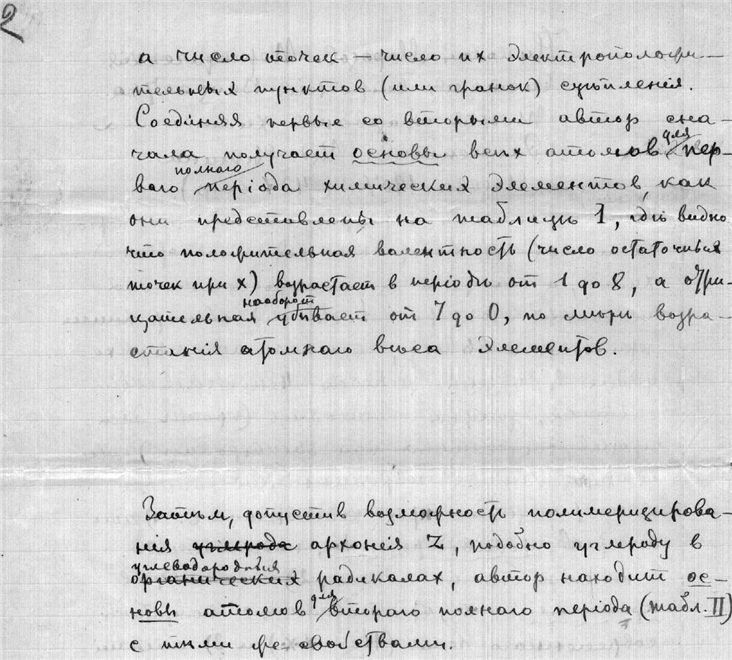 2
а число точек — число их электроположи-
тельных пунктов (или гранок) сцѣпленія.
Соединяя первые со вторыми автор сна-
чала получает основы всех атомов для пер-
ваго полнаго періода химических элементов, как
они представлены на таблицѣ 1, гдѣ видно
что положительная валентность (число остаточных
точек при х) возрастает в періодѣ от 1 до 8, а отри-
цательная наоборот убывает от 7 до 0, по мѣрѣ возра-
станія атомнаго вѣса элементов.
Затѣм, допустив возможность полимеризирова-
нія углерода архонія Z, подобно углероду в
углеводородных
органических радикалах, автор находит ос-
новы атомов для второго полнаго періода (табл. II)
с тѣми же свойствами.